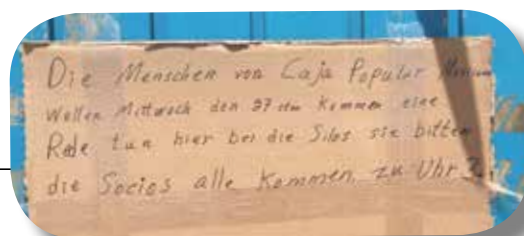 Die Menschen von Caja Popular
Wollen Mittwoch den 27 sten Kommen eine
Rede tun hier bei die Silos sie bitten
die Socios alle Kommen, zu Uhr 3.